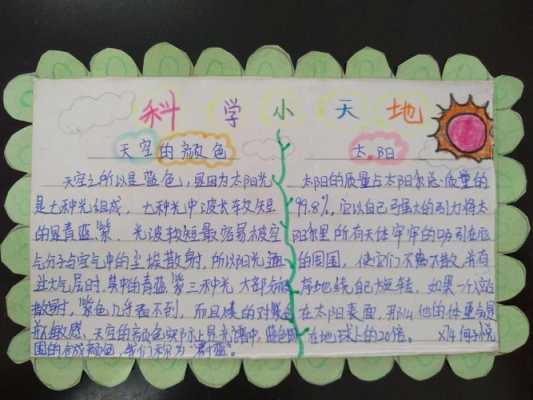 科学小天地
天空的颜色
天空之所以是蓝色,是因为太阳光
是七种光组成,七种光中波长较短
的是青蓝紫,光波较短最容易被空
气分子与空气中的尘埃散射,所以阳光
过大气层时,其中的青蓝紫三种光大部分
散射,紫色几乎看不到,而且
敏感,天空的颜色实际上是光谱中蓝色
国的合成颜色,我们称为"蔚蓝"。
太阳
太阳的质量占太阳系总质量的
99.8%,它以自己强大的引力将太
阳系里所有天体牢牢的吸引在它
的周围,使它们不离不散,井有
有序地绕自己旋转,如果一个人站
在太阳表面,那么他的体重会是
在地球上的20倍。